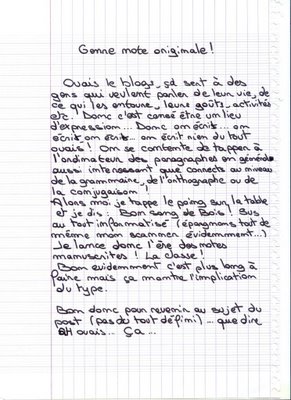 Genre note originale !
Ouais le blogs, ça sert à des
gens qui veulent parler de leur vie, de
ce qui les entoure, leurs goûts, activités
etc. Donc c'est censé être un lieu
d'expression... Donc on écrit... on
écrit... on écrit rien du tout
ouais ! On se contente de tapper à
l'ordinateur des paragraphes en général
aussi interessant que corrects au niveau
de la grammmaire, de l'orthographe ou de
la conjugaison !
Alors moi je tappe le poing sur la table
et je dis : Bon sang de Bois ! Sus
au tout informatisé (épargnons tout de
même mon scanner évidemment...)
Je lance donc l'ère des notes
manuscrites ! La classe !
Bon evidemment c'est plus long à
faire mais ça montre l'implication
du type.
Bon donc pour revenir au sujet du
post (pas du tout défini)... que dire
AH ouais... Ça...